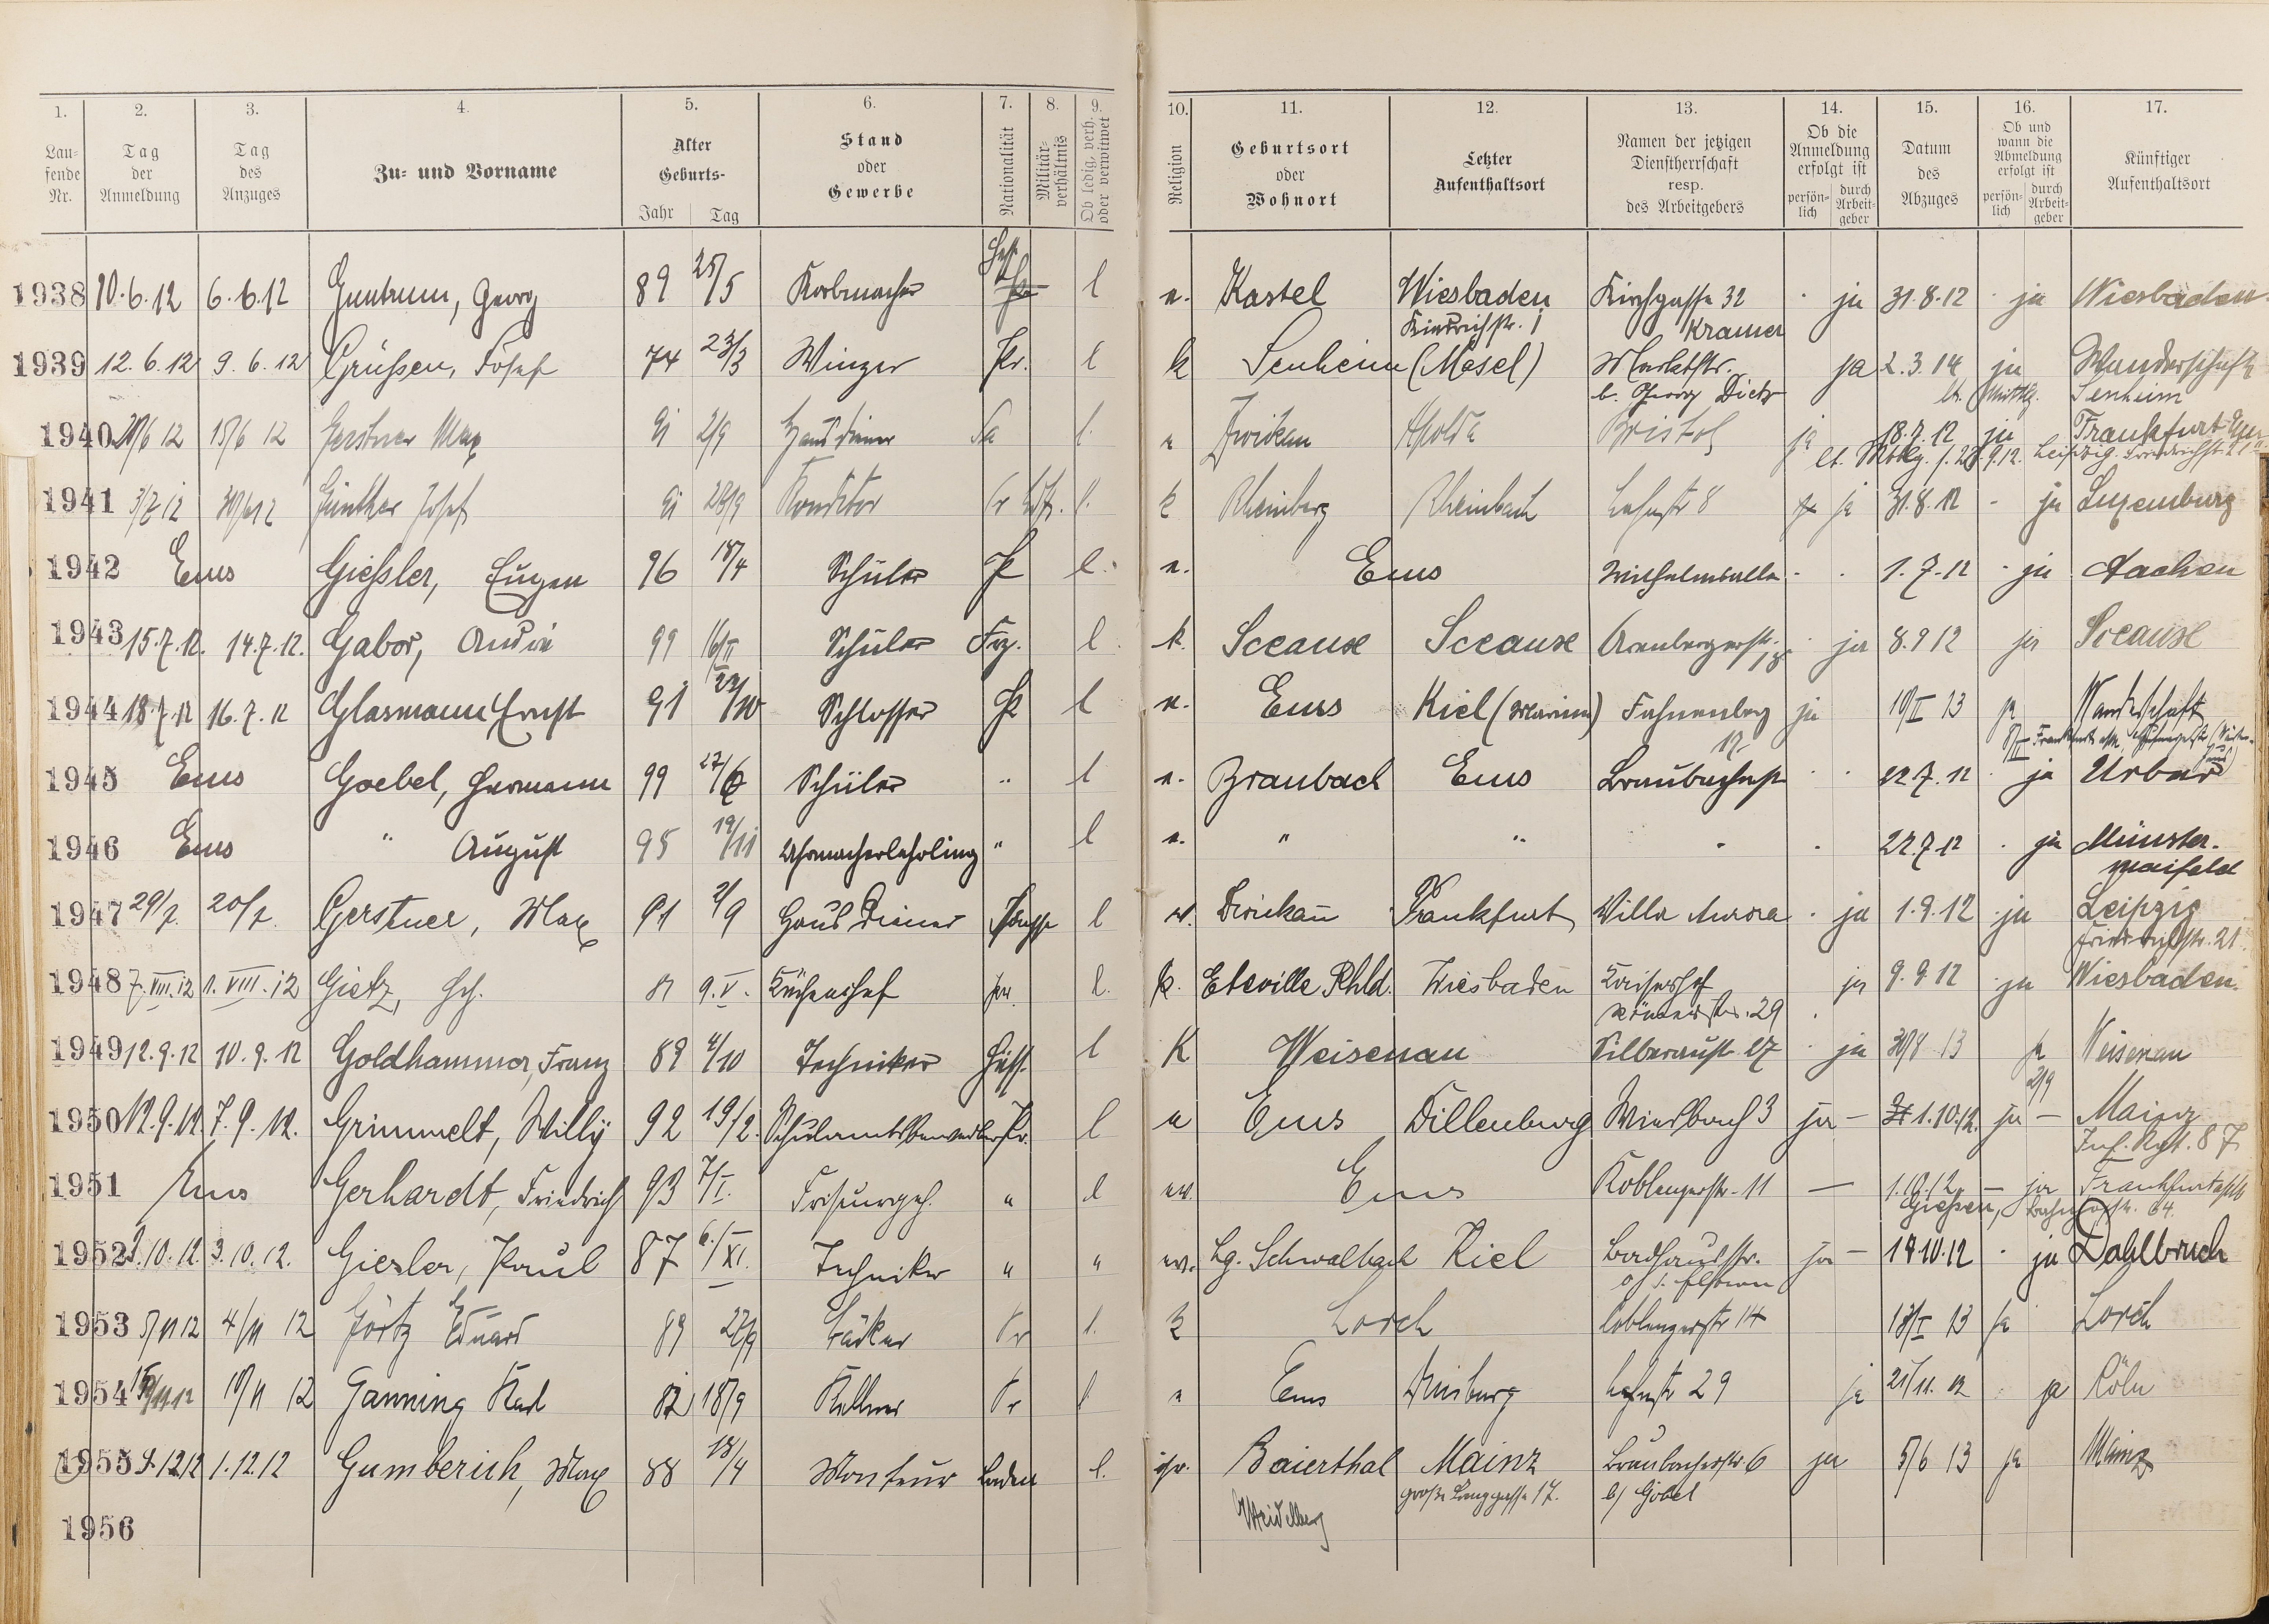 1. 2. 3. 4. 5. 6. 7. 8. 9. 10. 11. 12. 13. 14. 15. 16. 17.
Lau-
fende
Nr.
Tag
der
Anmeldung
Tag
des
Anzuges
Zu- und Vorname
Alter
Geburts-
Jahr Tag
Stand
oder
Gewerbe
Nationalität
Militär-
verhältnis
Ob ledig, verh.
oder verwitwet
Religion
Geburtsort
oder
Wohnort
Letzter
Aufenthaltsort
Namen der jetzigen
Dienstherrschaft
resp.
des Arbeitgebers
Ob die
Anmeldung
erfolgt ist
persön-
lich
durch
Arbeit-
geber
Datum
des
Abzuges
Ob und
wann die
Abmeldung
erfolgt ist
persön-
lich
durch
Arbeit-
geber
Künftiger
Aufenthaltsort
1938 10.6.12 6.6.12 Guntrum, Georg 89 25/5 Korbmacher l e. Kastel Wiesbaden Kirchgasse 32 ja 31.8.12 ja Wiesbaden
Kramer
1939 12.6.12 9.6.12 Grüßen, Josef 74 23/3 Winzer Pr. l k Senheim (Mosel) Marktstr. ja 2.3.14 ja Wanderschaft
b. Georg Dietz Senheim
1940 12 15/6 12 Gerstner Max 91 2/9 Hausdiener Sa l e Zwickau Apolda Bristol ja 18.7.12 ja Frankfurt
Leipzig. Friedrichstr. 21
1941 3/7 12 30/6 12 Günther Josef 91 Konditor Pr l. k Rheinberg Rheinbach Lahnstr 8 ja 31.8.12 - ja Luxemburg
1942 Ems Gießler, Eugen 96 18/4 Schüler Pr l. e. Ems Wilhelmsallee 1.7.12 ja Aachen
1943 15.7.12. 14.7.12. Gabor, 99 Schüler Frz. l k. Sceause Sceause Arenbergerstr. 18 ja 8.9 12 ja Sceause
1944 18.7.12 16.7.12 Glasmann Ernst 91 23/10 Schlosser Pr l e. Ems Kiel (Marine) Fahnenberg 12 ja 10/I 13 ja Wanderschaft
1945 Ems Goebel, Hermann 99 Schüler " l e. Braubach Ems Braubacherstr 22.7.12 ja Urbar
1946 Ems " August 95 19/11 Uhrmacherlehrling " l e. " " " 22.7.12 ja Münster-
maifeld
1947 29/7. 20/7. Gerstner, Max 91 2/9 Hausdiener l Zwickau Frankfurt Villa Aurora ja 1.9.12 ja Leipzig
Friedrichstr. 21.
1948 7.VIII.12 1.VIII.12 Gietz, Hch. 81 9.V. Küchenchef l. k. Eltville Rhld. Wiesbaden Kaiserhof ja 9.9.12 ja Wiesbaden.
Römerstr. 29
1949 12.9.12 10.9.12 Goldhammer, Franz 89 4/10 Techniker Hess. l K Weisenau Silberaustr 27 ja 30/8 13 ja Weisenau
2/9
1950 12.9.12. 7.9.12. Grimmelt, Willy 92 19/2. Schulamtsbewerber Pr. l e Ems Dillenburg Wiesbach 3 ja - 1.10.12. ja - Mainz
Inf. Rgt. 87
1951 Ems Gerhardt, Friedrich 93 7/I. Friseurgeh. " l ev. Ems Koblenzerstr. 11 - - ja Frankfurt
Gießen, Bahnhofstr. 64.
1952 3.10.12. 3.10.12. Giesler, Paul 87 6./XI. Techniker " " ev. Lg. Schwalbach Kiel Badhausstr. ja - 14.10.12 ja Dahlbruch
1953 5/11 12 4/11 12 Görtz Eduard 89 22/9 Bäcker Pr l. k Lorch Coblenzerstr 14 13/I 13 ja Lorch
1954 10/11 12 Ganning Karl 18/9 Kellner Pr l e Ems Duisburg Lahnstr 29 ja 21/11.12 ja Köln
1955 1.12.12 Gumberich, Max 88 18/4 Monteur Baden l. isr. Baierthal Mainz Braubacherstr. 6 ja 5/6 13 ja Mainz
große Langgasse 17. b/ Göbel
Heidelberg
1956